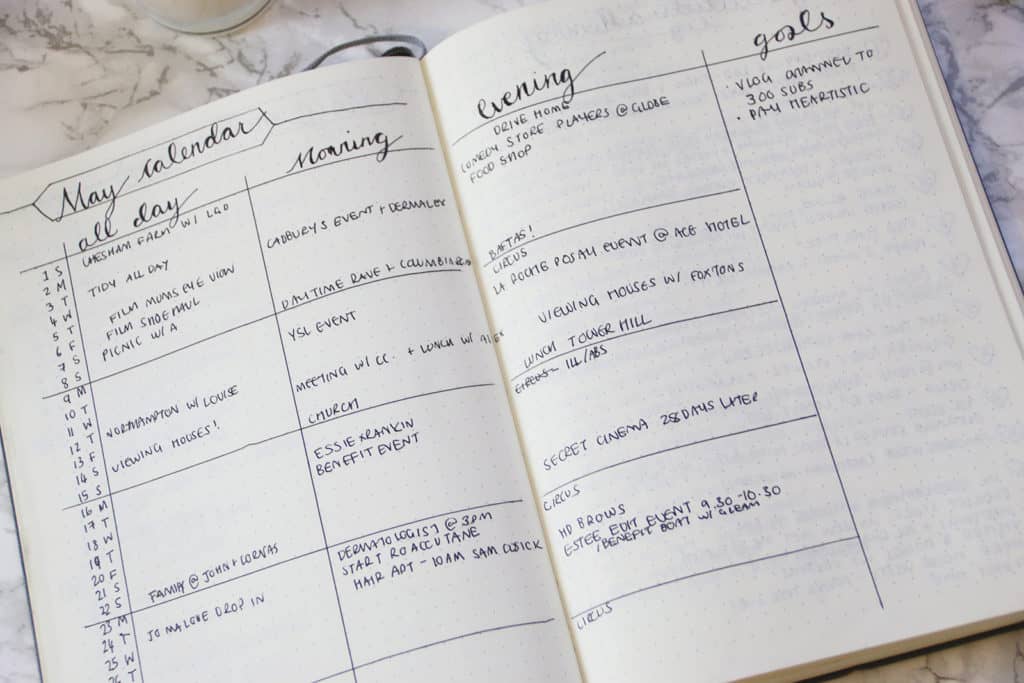 May calendar
all day
Morning
evening
goals
1 S
2 M
3 T
4 W
5 T
6 F
7 S
8 S
9 M
10 T
11 W
12 T
13 F
14 S
15 S
16 M
17 T
18 W
19 T
20 F
21 S
22 S
23 M
24 T
25 W
26 T
CHESHAM FARM W/ L&D
TIDY ALL DAY
FILM MUMS EYE VIEW
FILM SHOE HAUL
PICNIC W/ A
NORTHAMPTON W/ LOUISE
VIEWING HOUSES!
FAMILY @ JOHN + LORNAS
JO MALONE DROP IN
CADBURYS EVENT + DERMALEX
DAYTIME RAVE + COLUMBIA RD
YSL EVENT
MEETING W/ CC. + LUNCH W/
CHURCH
ESSIE RANKIN
BENEFIT EVENT
DERMATOLOGIST @ 3PM
START ROACCUTANE
HAIR APT - 10AM SAM CUSICK
DRIVE HOME
COMEDY STORE PLAYERS @ GLOBE
FOOD SHOP
BAFTAS!
CIRCUS
LA ROCHE POSAY EVENT @ ACE HOTEL
VIEWING HOUSES W/ FOXTONS
LUNCH TOWER HILL
CIRCUS - ILL/ABS
SECRET CINEMA 28 DAYS LATER
CIRCUS
HD BROWS
ESTEE EDIT EVENT 9.30-10.30
/BENEFIT BOAT W/ GLEAM
CIRCUS
· VLOG CHANNEL TO
300 SUBS
· PAY HEARTISTIC